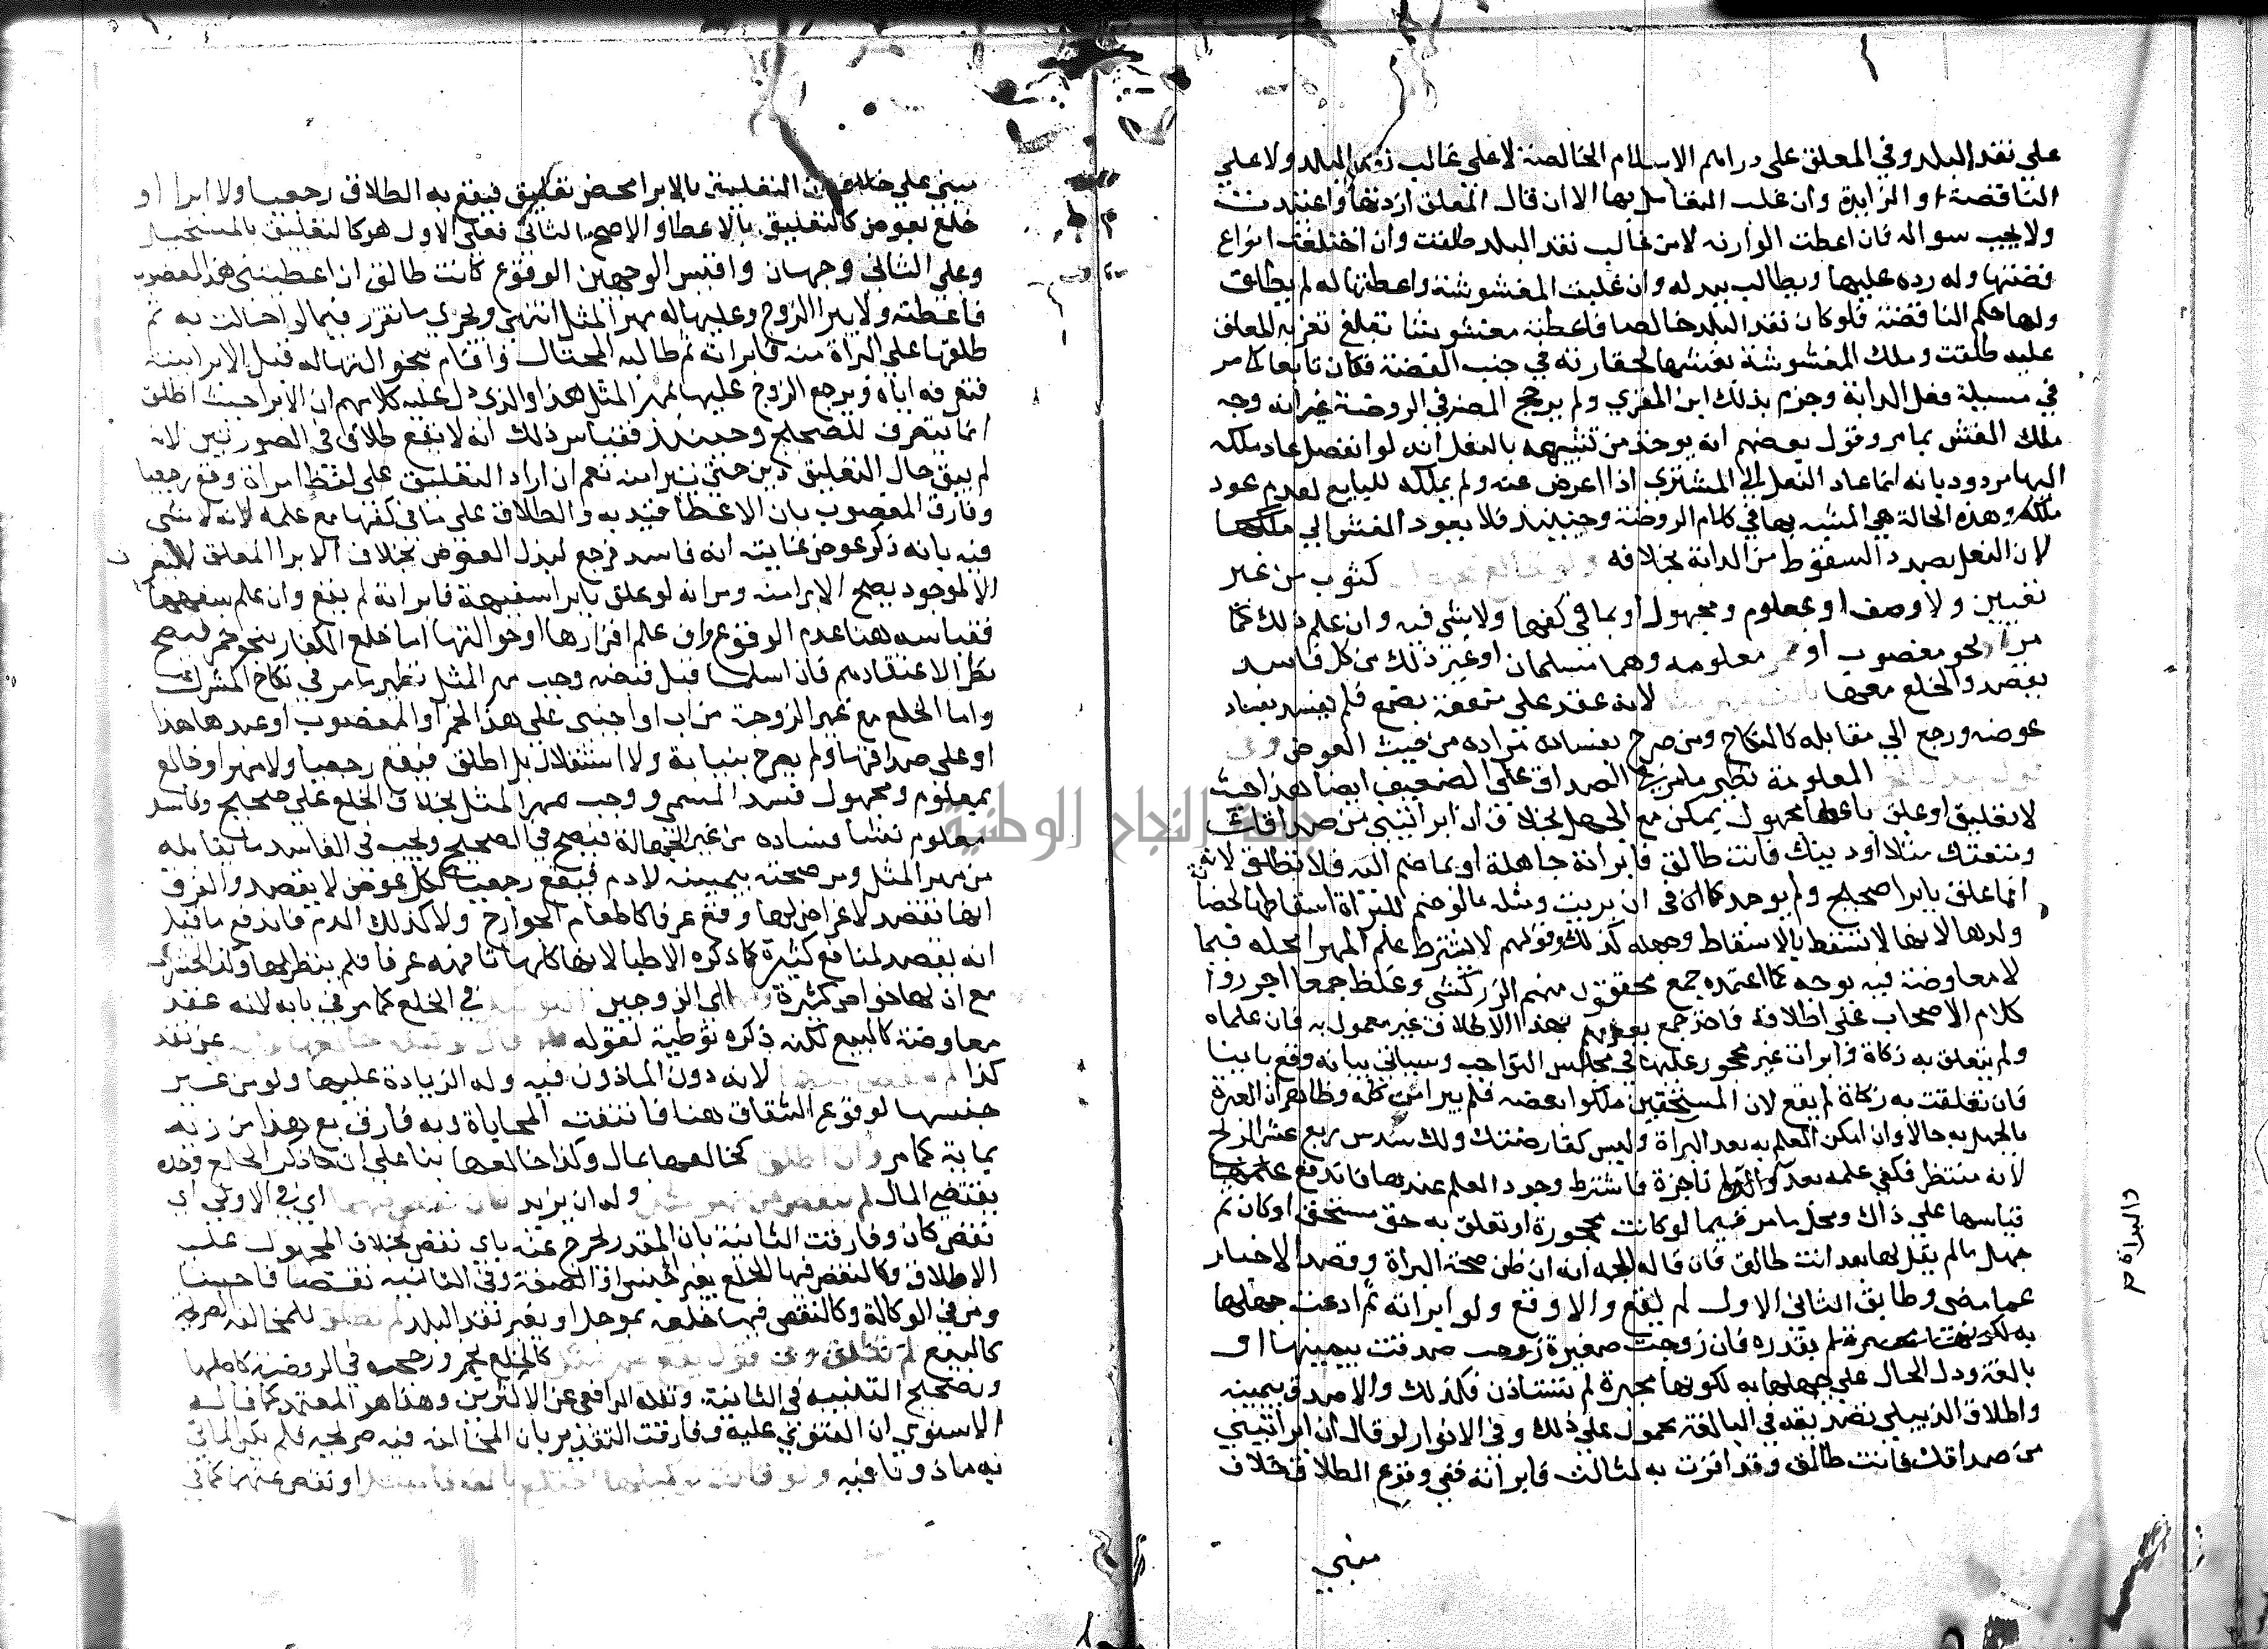 علي نقد البلد وفي المعلق علي دراهم الاسلام الخالصة لا علي غالب نقد البلد ولا علي
الناقصة او الزايدة وان غلب التعامل بها الا ان قال المعلق اردتها واعتيدت
ولا يجب سواله فان اعطت الوازنه لا من غالب نقد البلد طلقت وان اختلفت انواع
فضتها وله رده عليها ويطالب ببدله وان غلبت المغشوشة واعطتها له لم تطلق
ولها حكم الناقصة فلو كان نقد البلد خالصا فاعطته مغشوشا تبلغ نقرته المعلق
عليه طلقت وملك المغشوشة بغشها لحقارته في جنب الفضة فكان تابعا كما مر
في مسيلة نعل الدابة وجزم بذلك ابن المقري ولم يرجح المصنف في الروضة غير انه وجه
ملك الغش بما مر وقول بعضهم انه يوخذ من تشبيهه بالنعل انه لو انفصل عاد ملكه
اليها مردود بانه انما عاد النعل الي المشتري اذا اعرض عنه ولم يملكه للبايع لعدم عود
ملكه وهذه الحالة هي المشبه بها في كلام الروضة وحينيذ فلا يعود الغش الي ملكها
لان النعل بصدد السقوط من الدابة بخلافه كثوب من غير
تعيين ولا وصف او بمعلوم ومجهول او بما في كفها ولا شي فيه وان علم ذلك كما
مر او نحو مغصوب او معلومه وهما مسلمان او غير ذلك من كل فاسد
يقصد والخلع معها لانه عقد علي منفعة بضع فلم يفسد بفساد
عوضه ورجع الي مقابله كالنكاح ومن صرح بفساده مراده من حيث العوض وفي
المعلومة نظير ما مر في الصداق علي الضعيف ايضا هذا حيث
لا تعليق او علق باعطا مجهول يمكن مع الجهل بخلاف ان ابراتيني من صداقك
ومتعتك مثلا او دينك فانت طالق فابراته جاهلة او بما ضم اليه فلا تطلق لانه
انما علق بابرا صحيح ولم يوجد كما في ان بريت ومثله ما لو ضم للبراة اسقاطها لحضانة
ولدها لانها لا تسقط بالاسقاط وجهله كذلك وقولهم لا يشترط علم المبرا محله فيما
لا معاوضة فيه بوجه كما اعتمده جمع محققون منهم الزركشي وغلط جمعا اجروا
كلام الاصحاب علي اطلاقه فاخذ جمع بعدهم بهذا الاطلاق غير معمول به فان علماه
ولم يتعلق به زكاة وابرات غير محجور عليها في مجلس التواجب وسياتي بيانه وقع باينا
فان تعلقت به زكاة لم يقع لان المستحقين ملكوا بعضه فلم يبرا من كله وظاهر ان العبرة
بالجهل به حالا وان امكن العلم به بعد البراة وليس كقارضتك ولك سدس ربع عشر الربح
لانه منتظر فكفي علمه بعد والبراة ناجزة فاشترط وجود العلم عندها فاندفع
قياسها علي ذاك ومحل ما مر فيما لو كانت محجورة او تعلق به حق مستحق او كان ثم
جهل ما لم يقل لها بعد انت طالق فان قاله اتجه انه ان ظن صحة البراة وقصد الاخبار
عما مضي وطابق الثاني الاول لم يقع والا وقع ولو ابراته ثم ادعت جهلها
بقدره فان زوجت صغيرة زوجت صدقت بيمينها او
بالغة ودل الحال علي جهلها به لكونها مجبرة لم تستاذن فكذلك والا صدق بيمينه
واطلاق الزبيلي تصديقه في البالغة محمول علي ذلك وفي الانوار لو قال ان ابراتيني
من صداقك فانت طالق وقد اقرت به لثالث فابراته ففي وقوع الطلاق خلاف
مبني
والبراة صح
يبني علي خلاف ان التعليق بالابرا محض تعليق فيقع به الطلاق رجعيا ولا ابرا او
خلع بعوض كالتعليق بالاعطا والاصح الثاني فعلي الاول هو كالتعليق بالمستحيل
وعلي الثاني وجهان واقيس الوجهين الوقوع كانت طالق ان اعطيتني هذا المغصوب
فاعطته ولا يبرا الزوج وعليها له مهر المثل انتهي ويجري ما تقرر فيما لو احالت به ثم
طلقها علي البراة منه فابراته ثم طالبه المحتال واقام نحو التها له قبل الابرا بينة
فتغرمه اياه ويرجع الزوج عليها بمهر المثل هذا والذي دل عليه كلامهم ان الابرا حيث اطلق
انما ينصرف للصحيح وحينيذ فقياس ذلك انه لا يقع طلاق في الصورتين لانه
لم يبق حال التعليق دين حتي تبرا منه نعم ان اراد التعليق علي لفظ البراة وقع رجعيا
وفارق المغصوب بان الاعطا قيد به والطلاق علي ما في كفها مع علمه لانه لا شي
فيه بانه ذكر عوض غايته انه فاسد فرجع لبدل العوض بخلاف الابرا المعلق
لا لموجود يصح الابرا منه ومر انه لو علق بابرا سفيهة فابراته لم يقع وان علم سفهها
فقياسه هنا عدم الوقوع وان علم اقرارها او حوالتها اما خلع الكفار بنحو خمر فيصح
نظرا لاعتقادهم فان اسلما قبل قبضه وجب مهر المثل نظير ما مر في نكاح المشرك
واما الخلع مع غير الزوجة من اب او اجنبي علي هذا الخمر او المغصوب او عبدها هذا
او علي صداقها ولم يصرح بنيابة ولا استقلال بل اطلق فيقع رجعيا ولا مهر او خالع
بمعلوم ومجهول فسد المسمي ووجب مهر المثل بخلاف الخلع علي صحيح وفاسد
معلوم نشا فساده من غير الجهالة فيصح في الصحيح ويجب في الفاسد ما يقابله
من مهر المثل ومر صحته بميتة لا دم فيقع رجعيا ككل عوض لا يقصد والفرق
انها تقصد لاغراض لها وقع عرفا كاطعام الجوارح ولا كذلك الدم فاندفع ما قيل
انه يقصد لمنافع كثيرة كما ذكره الاطبا لانها كلها تافهة عرفا فلم ينظر لها وكذا الحشرات
مع ان لها خواص كثيرة اي الزوجين في الخلع كما مر في بابه لانه عقد
معاوضة كالبيع لكنه ذكره توطية لقوله
كذا لم لانه دون الماذون فيه وله الزيادة عليها ولو من غير
جنسها لوقوع الشقاق هنا فانتفت المحاباة وبه فارق بع هذا من زيد
بماية كما مر وان اطلق كخالعها بمال وكذا خالعها بنا علي ان ذكر الخلع وحده
يقتضي المال لم ينقص عن مهر مثل وله ان يزيد اي في الاولي اي
نقص كان وفارقت الثانية بان المقدر يخرج عنه باي نقص بخلاف المحمول عليه
الاطلاق وكالنقص فيها الخلع بغير الجنس او الصفة وفي الثانية نقصا فاحشا
ومر في الوكالة وكالنقص فيها خلعه بموجل او بغير نقد البلد لم تطلق للمخالفة الصريحة
كالبيع لم تطلق وفي قول يقع بمهر مثل كالخلع بخمر ورجحه في الروضة كاصلها
وبتصحيح التنبيه في الثانية ونقله الرافعي عن الاكثرين وهذا هو المعتمد كما قاله
الاسنوي ان الفتوي عليه وفارقت التقدير بان المخالفة فيه صريحة فلم يكن الماتي
به ماذونا فيه ولو قالت لوكيلها اختلع بالف فامتثل او نقص عنها كما في